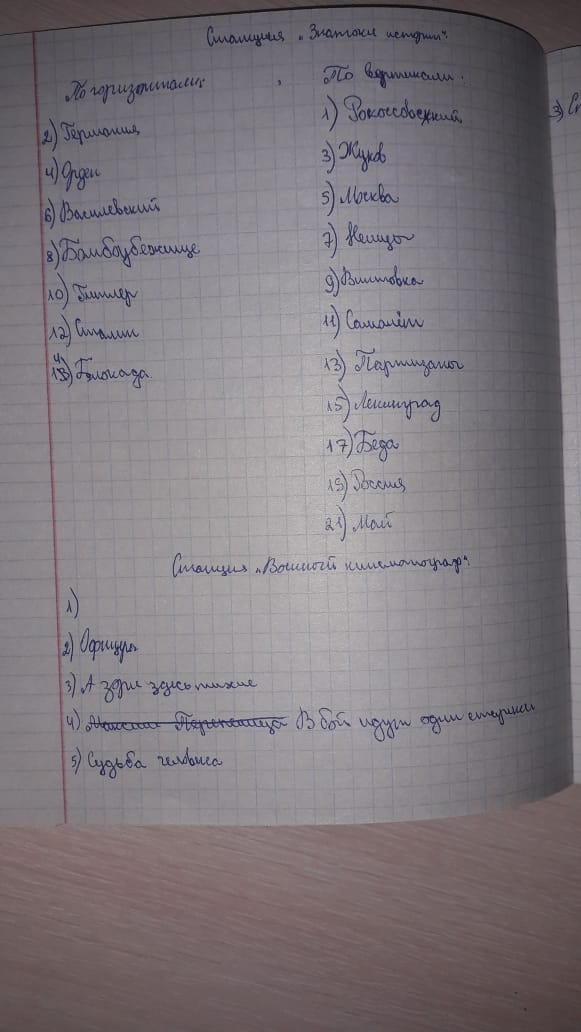 Станция „Знатоки истории".
По горизонтали:
По вертикали:
2) Германия
4) Орден
6) Василевский
8) Бомбоубежище
10) Гитлер
12) Сталин
14) Блокада
1) Рокоссовский
3) Жуков
5) Москва
7) Немцы
9) Винтовка
11) Самолёт
13) Партизаны
15) Ленинград
17) Беда
19) Россия
21) Май
3) Ст
Станция „Военный кинематограф".
1)
2) Офицеры
3) А зори здесь тихие
4) Максим Перепелица В бой идут одни старики
5) Судьба человека